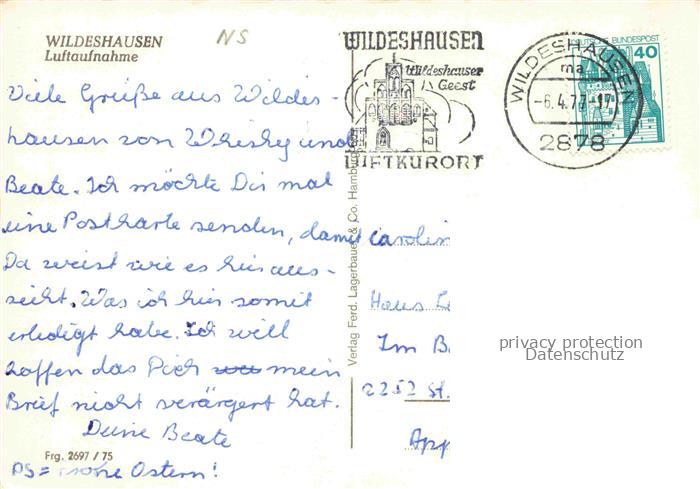 WILDESHAUSEN
Luftaufnahme
NS
Viele Grüße aus Wildes-
hausen von Whisky und
Beate. Ich möchte Dir mal
eine Postkarte senden, damit
Du weist wie es hier aus-
seiht. Was ich hier somit
erledigt habe. Ich will
hoffen das Dich mein
Brief nicht verärgert hat.
Deine Beate
Frg. 2697 / 75
PS = Frohe Ostern!
Verlag Ferd. Lagerbauer & Co. Hamburg
WILDESHAUSEN
Wildeshauser
Geest
LUFTKURORT
WILDESHAUSEN
ma
-6.4.77-17
2878
DEUTSCHE BUNDESPOST
40
Carolin
Haus
Im B
2252 St.
App
privacy protection
Datenschutz